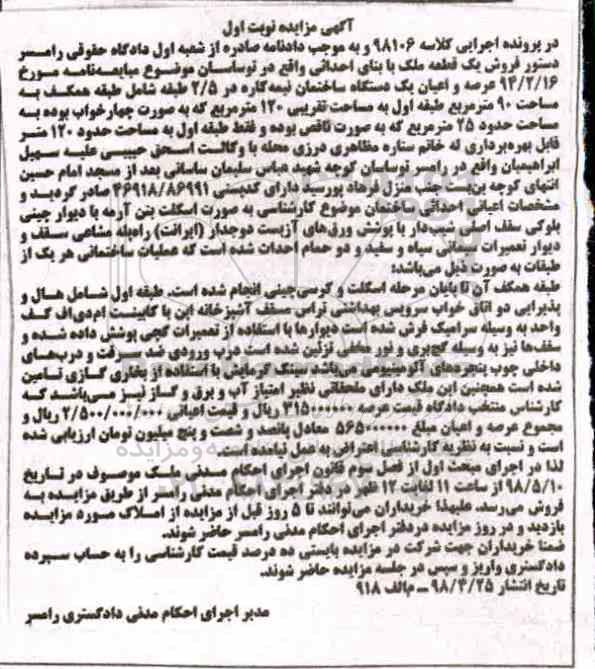 آگهی مزایده نوبت اول
در پرونده اجرایی کلاسه ۹۸۱۰۶ و به موجب دادنامه صادره از شعبه اول دادگاه حقوقی رامسر
دستور فروش یک قطعه ملک با بنای احداثی واقع در توساسان موضوع مبایعه‌نامه مورخ
۹۴/۲/۱۶ عرصه و اعیان یک دستگاه ساختمان نیمه‌کاره در ۲/۵ طبقه شامل طبقه همکف به
مساحت ۹۰ مترمربع طبقه اول به مساحت تقریبی ۱۲۰ مترمربع که به صورت چهارخواب بوده به
مساحت حدود ۲۵ مترمربع که به صورت ناقص بوده و فقط طبقه اول به مساحت حدود ۱۲۰ متر
قابل بهره‌برداری له خانم ستاره مظاهری درزی محله با وکالت اسحق حبیبی علیه سهیل
ابراهیمیان واقع در رامسر توساسان کوچه شهید عباس سلیمان ساسانی بعد از مسجد امام حسین
انتهای کوچه بن‌بست جنب منزل فرهاد پورسید دارای کدپستی ۴۶۹۱۸/۸۶۹۹۱ صادر گردید و
مشخصات اعیانی احداثی ساختمان موضوع کارشناسی به صورت اسکلت بتن آرمه با دیوار چینی
بلوکی سقف اصلی شیب‌دار با پوشش ورق‌های آزبست دوجدار (ایرانت) راه‌پله مشاعی سقف و
دیوار تعمیرات سیمانی سیاه و سفید و دو حمام احداث شده است که عملیات ساختمانی هر یک از
طبقات به صورت ذیل می‌باشد:
طبقه همکف آن تا پایان مرحله اسکلت و کرسی‌چینی انجام شده است. طبقه اول شامل هال و
پذیرایی دو اتاق خواب سرویس بهداشتی تراس مسقف آشپزخانه اپن با کابینت ام‌دی‌اف کف
واحد به وسیله سرامیک فرش شده است دیوارها با استفاده از تعمیرات گچی پوشش داده شده و
سقف‌ها نیز به وسیله گچبری و نور مخفی تزئین شده است درب ورودی ضد سرقت و درب‌های
داخلی چوب پنجره‌های آلومینیومی می‌باشد سیتک گرمایش با استفاده از بخاری گازی تامین
شده است همچنین این ملک دارای ملحقاتی نظیر امتیاز آب و برق و گاز نیز می‌باشد که
کارشناس منتخب دادگاه قیمت عرصه ۳۱۵۰۰۰۰۰۰۰ ریال و قیمت اعیانی ۲/۵۰۰/۰۰۰/۰۰۰ ریال و
مجموع عرصه و اعیان مبلغ ۵۶۵۰۰۰۰۰۰۰ معادل پانصد و شصت و پنج میلیون تومان ارزیابی شده
است و نسبت به نظریه کارشناسی اعتراض به عمل نیامده است.
لذا در اجرای مبحث اول از فصل سوم قانون اجرای احکام مدنی ملک موصوف در تاریخ
۹۸/۵/۱۰ از ساعت ۱۱ لغایت ۱۲ ظهر در دفتر اجرای احکام مدنی رامسر از طریق مزایده به
فروش می‌رسد. علیهذا خریداران می‌توانند تا ۵ روز قبل از مزایده از املاک مورد مزایده
بازدید و در روز مزایده دردفتر اجرای احکام مدنی رامسر حاضر شوند.
ضمنا خریداران جهت شرکت در مزایده بایستی ده درصد قیمت کارشناسی را به حساب سپرده
دادگستری واریز و سپس در جلسه مزایده حاضر شوند.
تاریخ انتشار ۹۸/۴/۲۵ ــ م‌الف ۹۱۸
مدیر اجرای احکام مدنی دادگستری رامسر